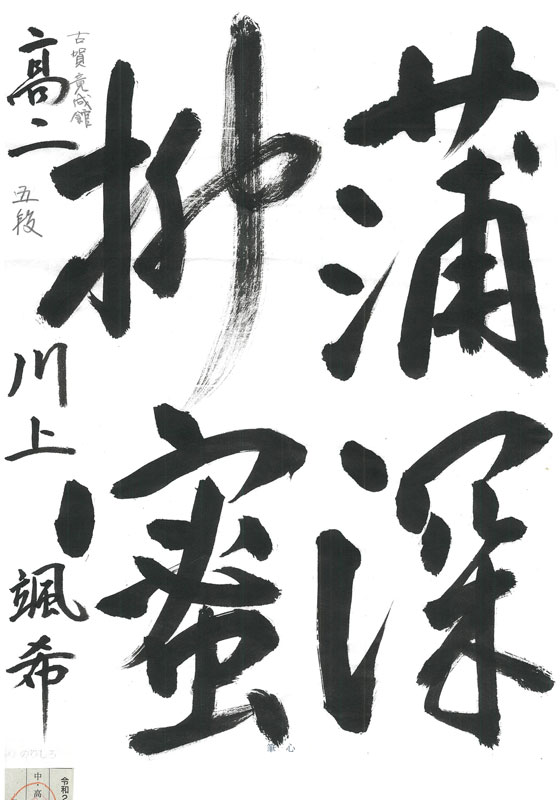 蒲深
柳蜜
古賀竟成館
高二 五段 川上颯希
のりしろ
令和2
中・高